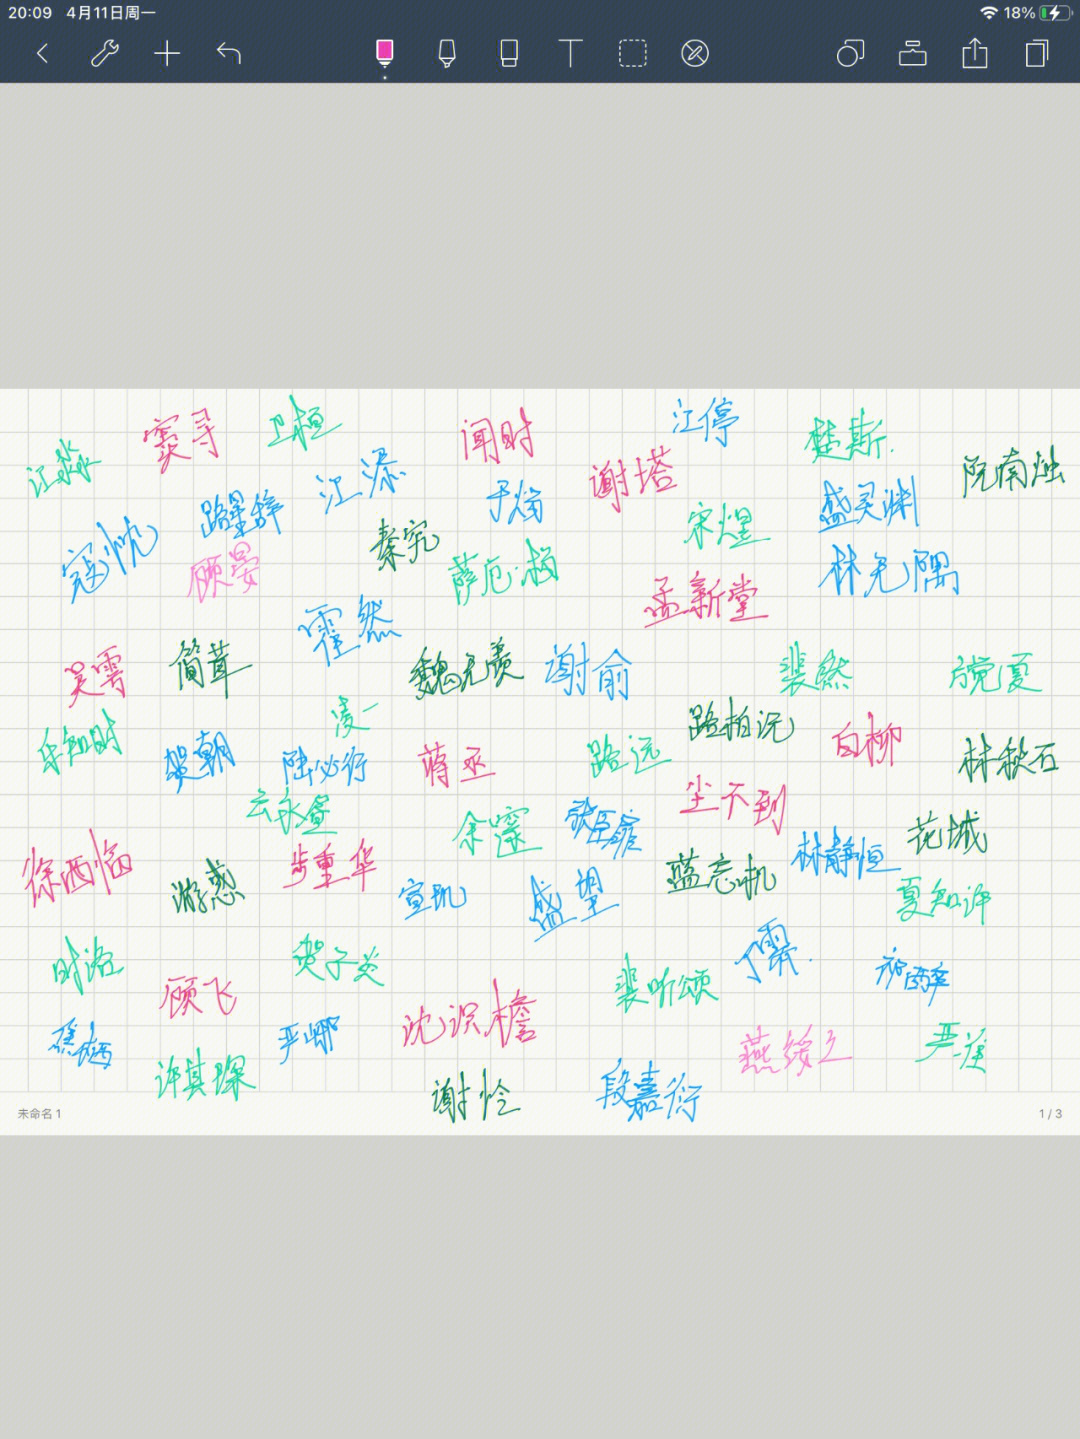 20:09 4月11日周一 18%
江淼 窦寻 卫桓 闻时 江停 楚斯.
路星辞 江添 于炀 谢塔 宋煌 盛灵渊 阮南烛
寇忱 顾晏 秦究 萨厄·杨 孟新堂 林无隅
吴雩 简茸 霍然 魏无羡 谢俞 裴然 方觉夏
乐知时 贺朝 凌一 陆必行 蒋丞 路远 路柏沅 白柳 林秋石
云永昼 余霆 张臣扉 尘不到
徐西临 游惑 步重华 宣玑 盛望 蓝忘机 林静恒 花城
夏知许
时洛 顾飞 贺子炎 裴听颂 丁霁. 祁醉
焦栖 许其琛 严峫 沈识檐 谢怜 段嘉衍 燕绥之
未命名 1 1 / 3